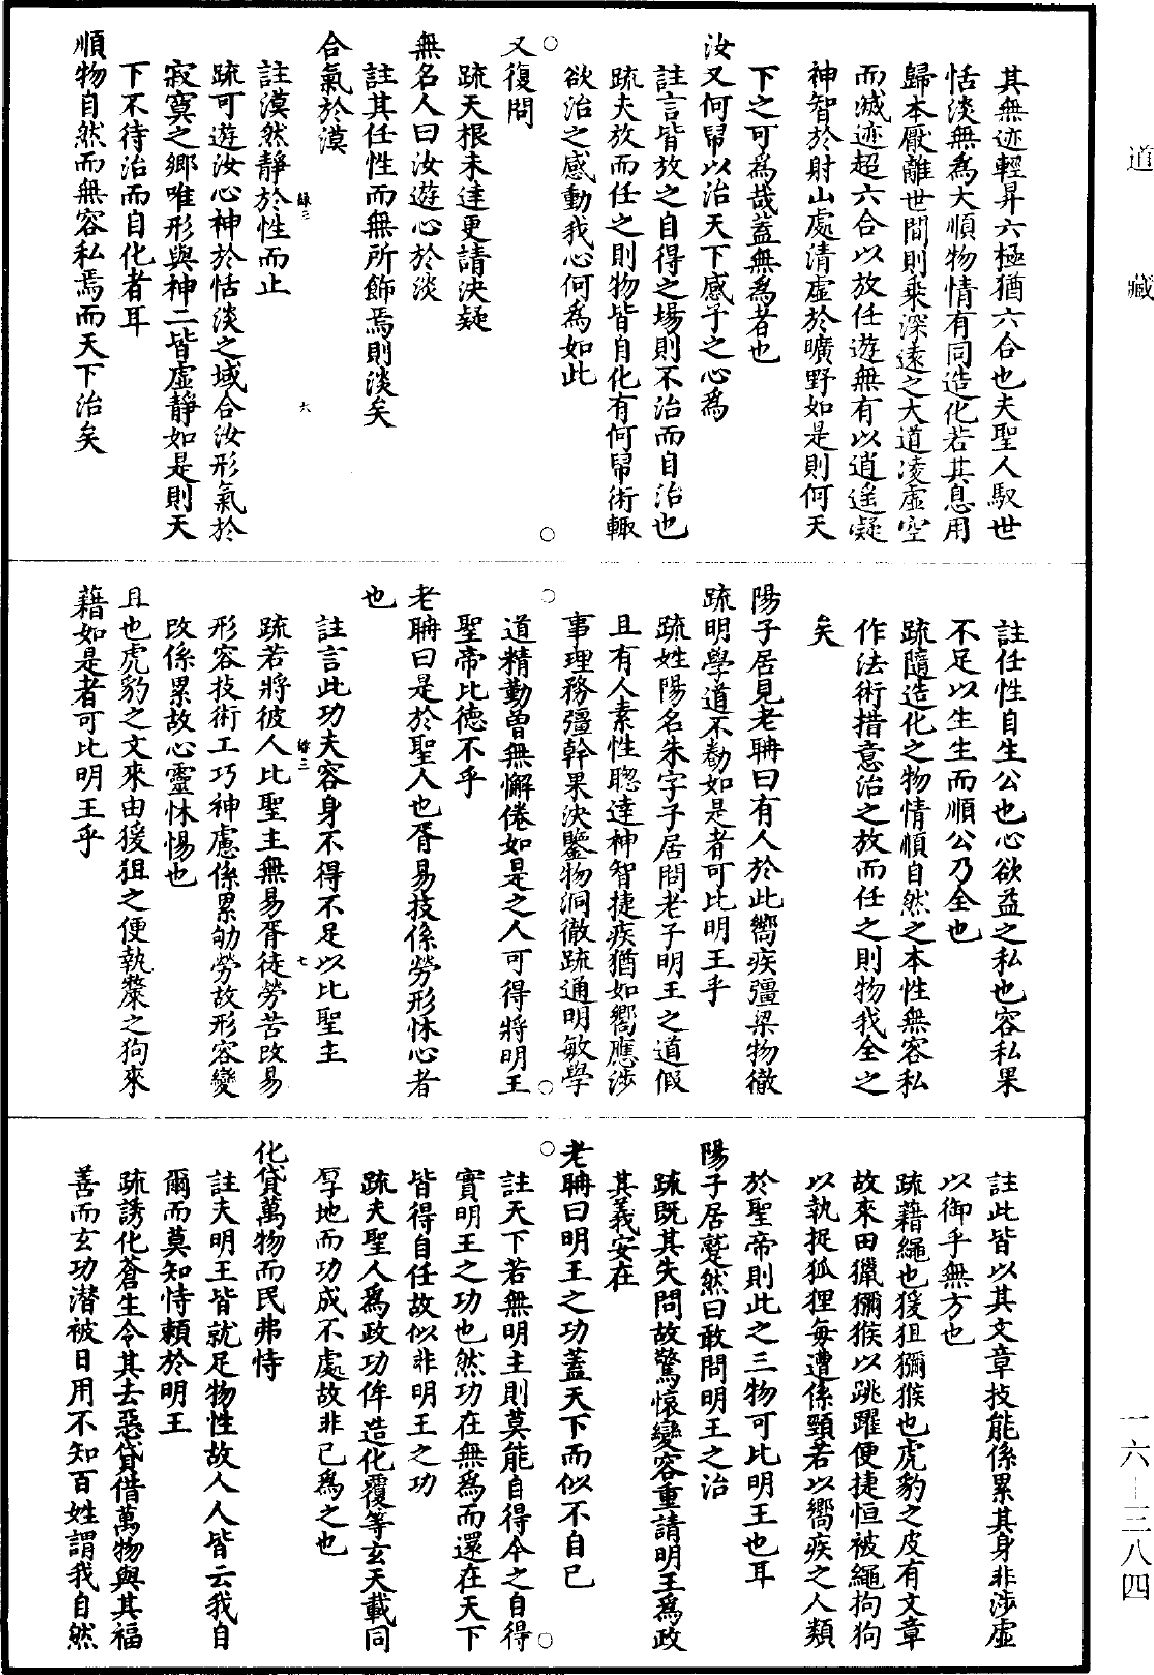 道藏
其無迹輕昇六極猶六合也夫聖人馭世
恬淡無為大順物情有同造化若其息用
歸本厭離世間則乘深遠之大道凌虛空
而滅迹超六合以放任遊無有以逍遥凝
神智於射山處清虛於曠野如是則何天
下之可為哉蓋無為者也
汝又何帠以治天下感予之心為
註言皆放之自得之場則不治而自治也
疏夫放而任之則物皆自化有何帠術輙
欲治之感動我心何為如此
又復問
疏天根未達更請決疑
無名人曰汝遊心於淡
註其任性而無所飾焉則淡矣
合氣於漠
註漠然靜於性而止
疏可遊汝心神於恬淡之域合汝形氣於
寂寞之鄉唯形與神二皆虛靜如是則天
下不待治而自化者耳
順物自然而無容私焉而天下治矣
註任性自生公也心欲益之私也容私果
不足以生生而順公乃全也
疏隨造化之物情順自然之本性無容私
作法術措意治之放而任之則物我全之
矣
陽子居見老聃曰有人於此嚮疾彊梁物徹
疏明學道不勌如是者可比明王乎
疏姓陽名朱字子居問老子明王之道假
且有人素性聦達神智捷疾猶如嚮應涉
事理務彊幹果決鑒物洞徹疏通明敏學
道精勤曽無懈倦如是之人可得將明王
聖帝比德不乎
老聃曰是於聖人也胥易技係勞形怵心者
也
註言此功夫容身不得不足以比聖主
疏若將彼人比聖主無易胥徒勞苦改易
形容技術工巧神慮係累劬勞故形容變
改係累故心靈怵惕也
且也虎豹之文來田猨狙之便執斄之狗來
藉如是者可比明王乎
註此皆以其文章技能係累其身非涉虛
以御乎無方也
疏藉繩也猨狙獼猴也虎豹之皮有文章
故來田獵獼猴以跳躍便捷恒被繩拘狗
以執捉狐狸每遭係頸若以嚮疾之人類
於聖帝則此之三物可比明王也耳
陽子居蹵然曰敢問明王之治
疏既其失問故驚悚變容重請明王為政
其義安在
老聃曰明王之功蓋天下而似不自己
註天下若無明主則莫能自得今之自得
實明王之功也然功在無為而還在天下
皆得自任故似非明王之功
疏夫聖人為政功侔造化覆等玄天載同
厚地而功成不處故非己為之也
化貸萬物而民弗恃
註夫明王皆就足物性故人人皆云我自
爾而莫知恃賴於明王
疏誘化蒼生令其去惡貸借萬物與其福
善而玄功潜被日用不知百姓謂我自然
一六—三八四